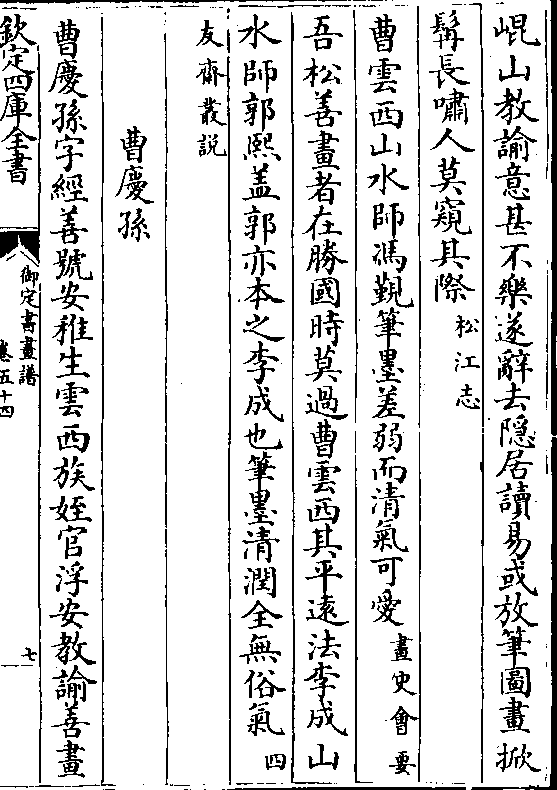 崐山教諭意甚不樂遂辭去隐居讀易或放筆圖畫掀
髯長嘯人莫窺其際松江志
曹雲西山水師馮覲筆墨差弱而清氣可愛畫史會要
吾松善畫者在勝國時莫過曹雲西其平遠法李成山
水師郭熙盖郭亦本之李成也筆墨清潤全無俗氣四
友齋叢説
曹慶孫
曹慶孫字經善號安稚生雲西族姪官浮安教諭善畫
欽定四庫全書
御定書畫譜
卷五十四
七